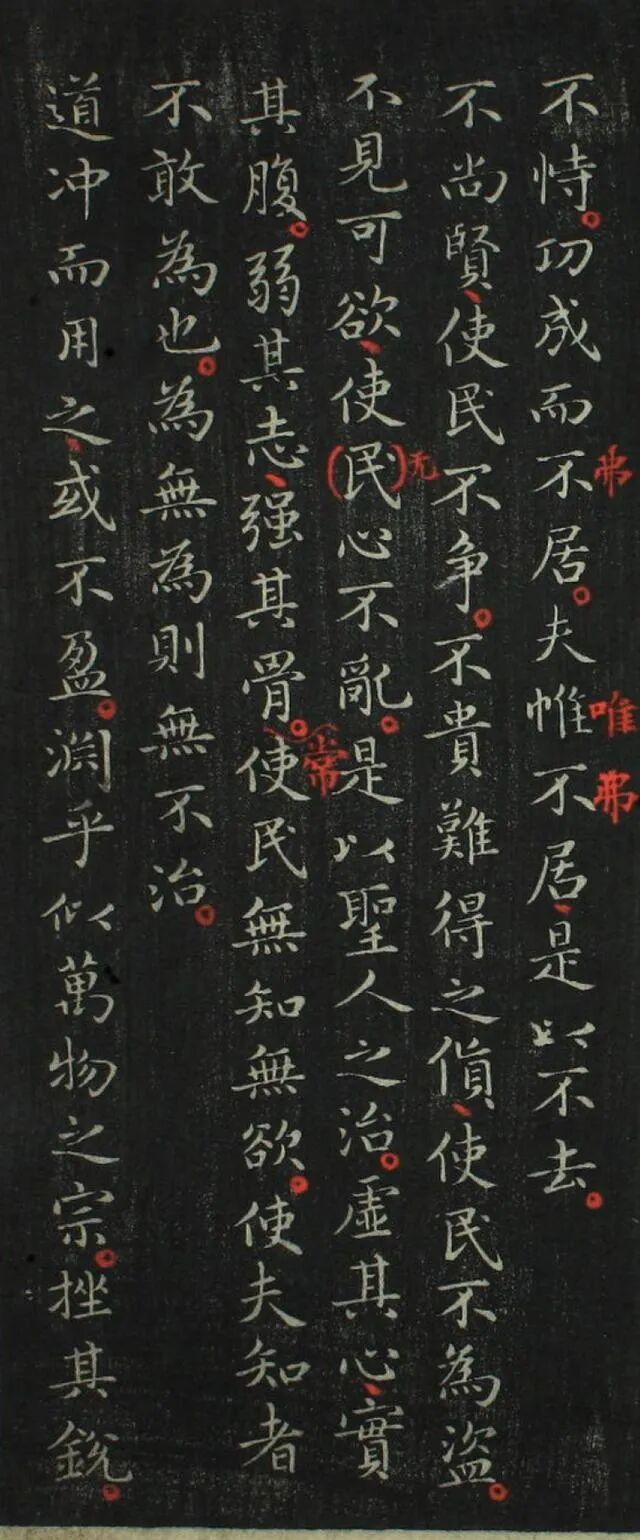 不恃。功成而不居。夫惟不居、是以不去。
弗
唯
弗
不尚賢、使民不争。不貴難得之貨、使民不為盗。
不見可欲、使(民)心不亂。是以聖人之治。虛其心、實
无
其腹。弱其志、强其骨。使民無知無欲。使夫知者
常
不敢為也。為無為則無不治。
道冲而用之、或不盈。渊乎似萬物之宗。挫其銳。